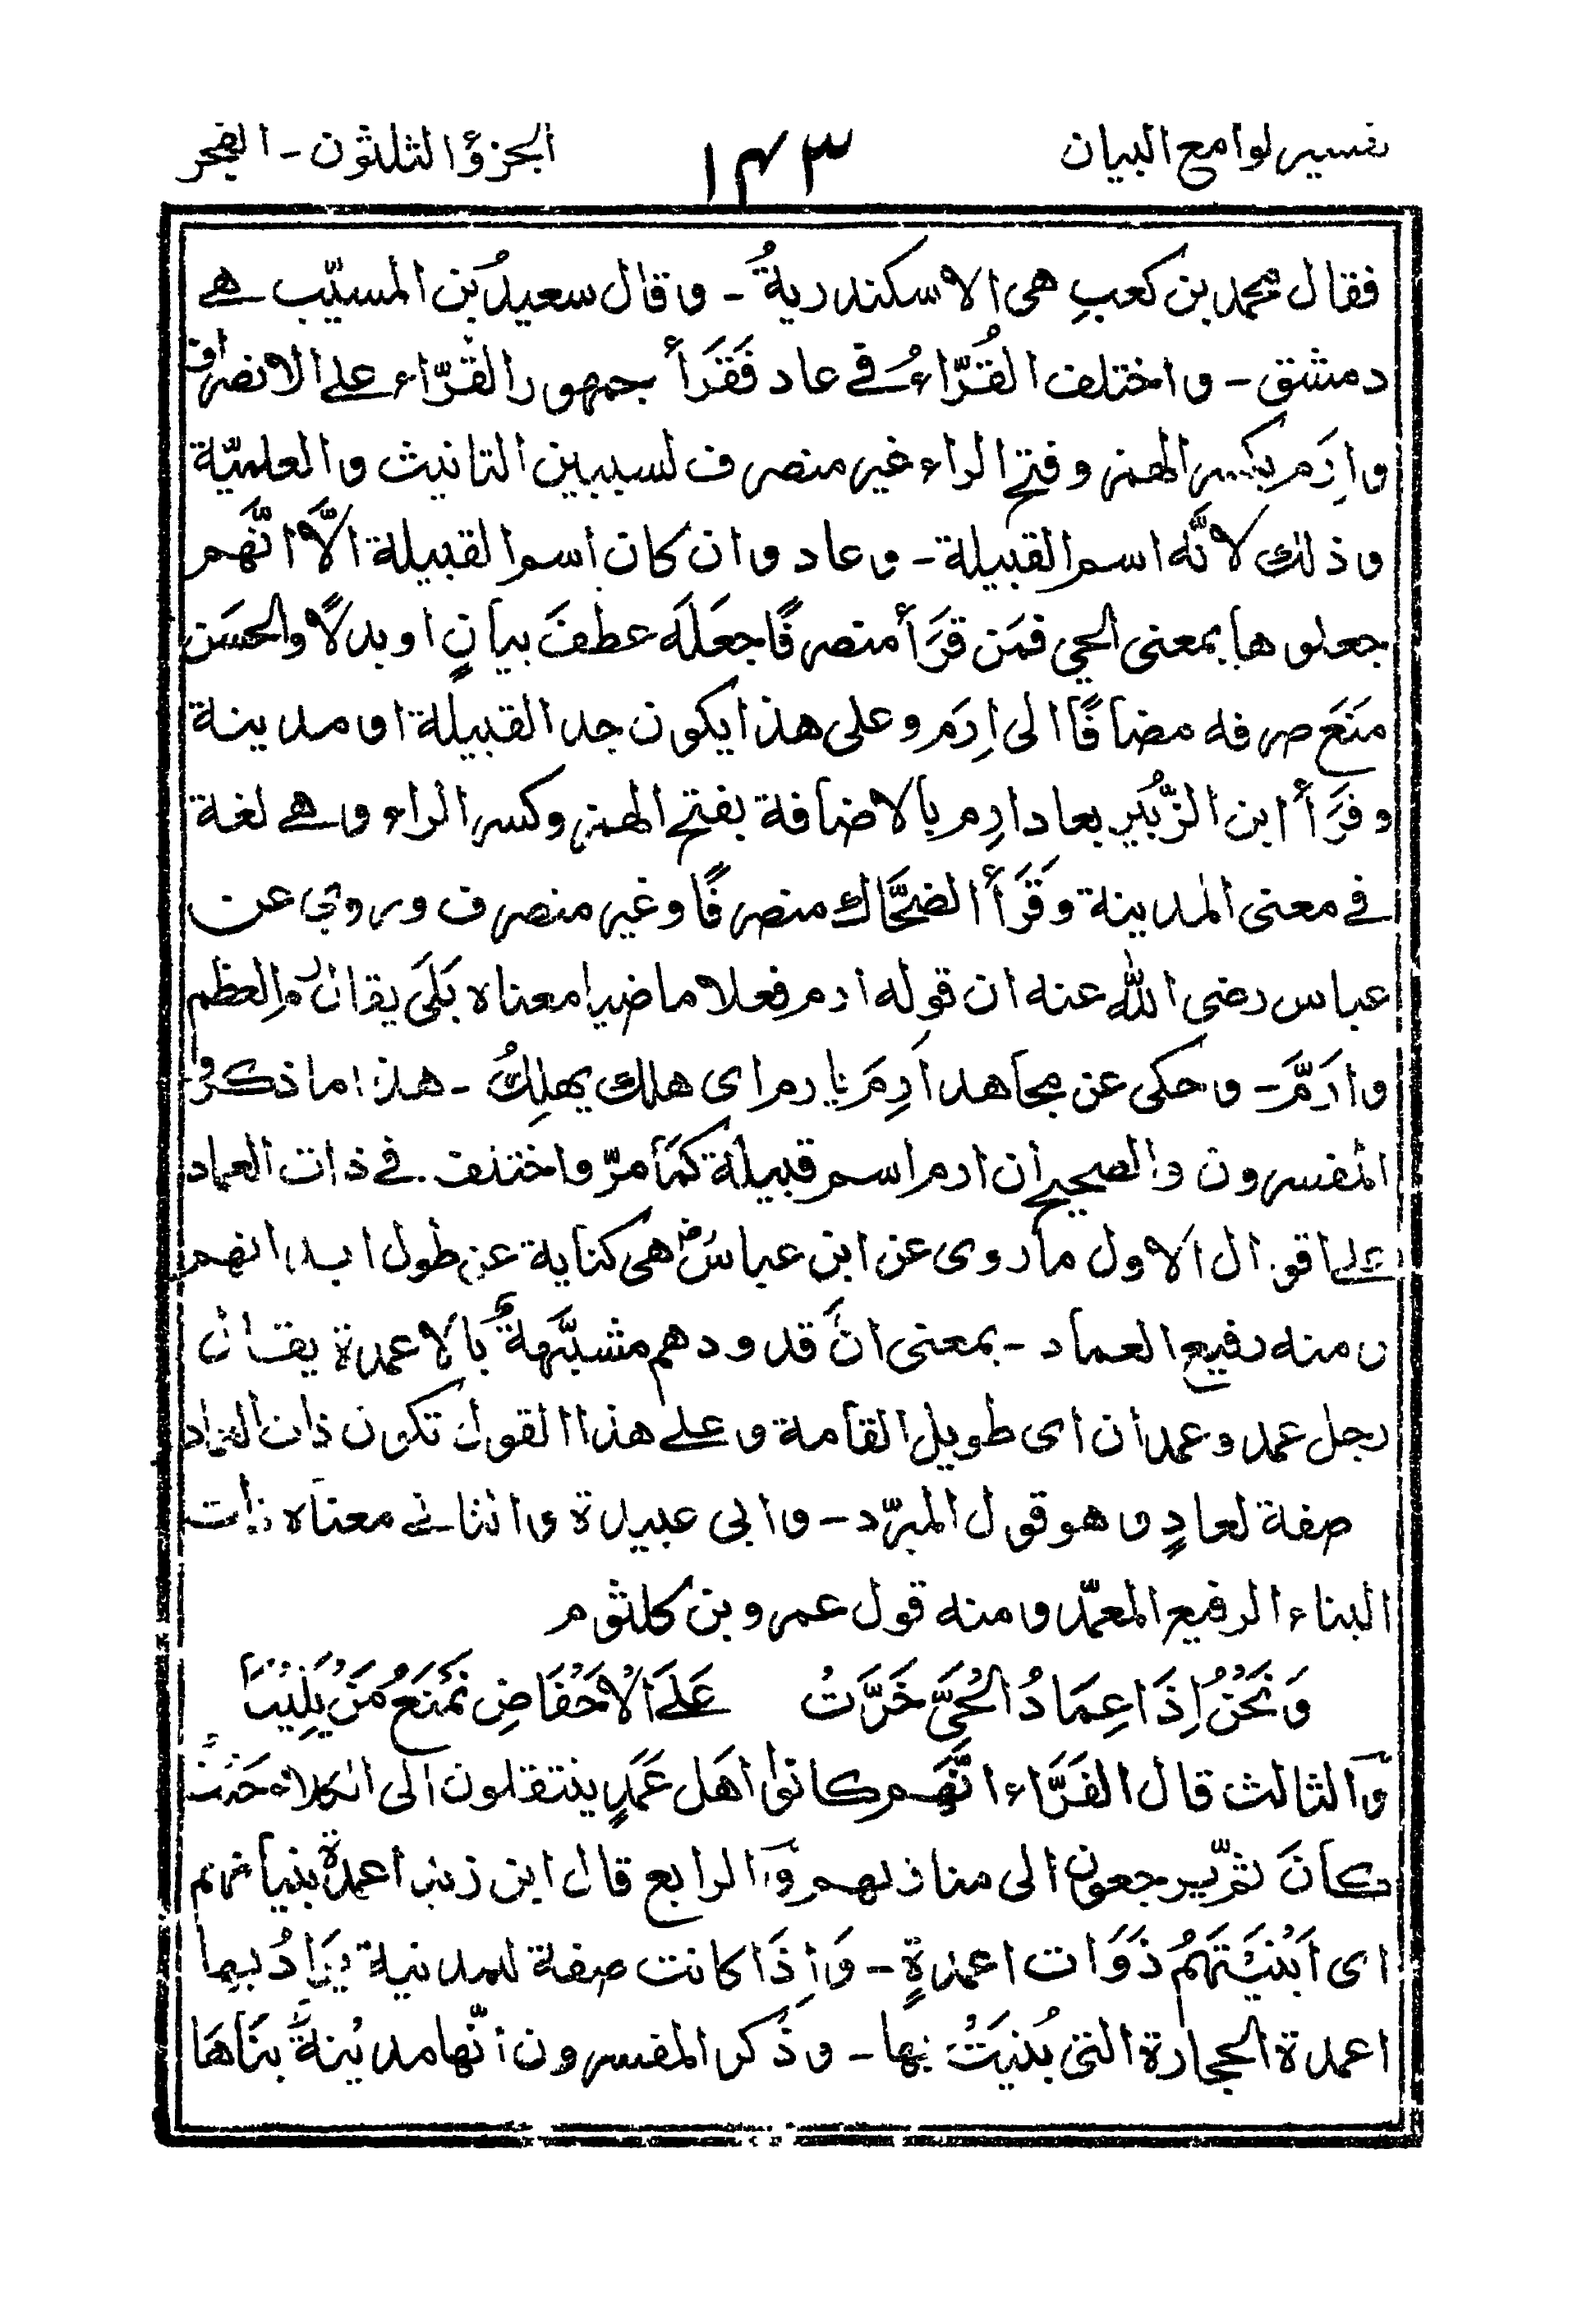 تفسير لوامع البيان
١٤٣
الجزؤ الثلثون - الفجر
فقال محمد بن كعبٍ هى الاسكندريةُ - وقال سعيدُ بن المسيّب هے
دمشق - واختلف القُرّاءُ فے عاد فَقَرَأَ جمهور القرّاء علے الانصراف
وارَم بكسر الهمز وفتح الراء غير منصرف لسببين التانيث والعلميّة
وذلك لانّه اسم القبيلة - وعاد وان كان اسم القبيلة الّا انّهم
جعلوها بمعنى الحي فمَن قَرَأ منصرفًا جعَلَه عطفَ بيانٍ او بدلًا والحسَن
مَنَعَ صرفه مضافًا الى اِرَم وعلى هذا يكون جد القبيلة او مدينة
وقَرَأَ ابن الزّبُير بعاد ارِم بالاضافة بفتح الهمز وكسر الراء وهے لغة
فے معنى المدينة وقَرَأَ الضحَّاك منصرفًا وغير منصرف وروي عن
عباس رضى الله عنه ان قوله ارم فعلا ماضيا معناه بَلَى يقال رم العظم
وارَمَّ - وحكى عن مجاهد اَرِمَ يارم اى هلك يهلِكُ - هذا ما ذكره
المفسرون والصحيح ان ارم اسم قبيلة كمَا مرّ واختلف فے ذات العماد
علے اقوال الاول ما روى عن ابن عباسؓ هى كناية عن طول ابدانهم
ومنه رفيع العماد - بمعنى انّ قدودهم مشبَّهةٌ بالاعمدة يقال
رجل عمد وعمدان اى طويل القامة وعلے هذا القول تكون ذات العماد
صفة لعادٍ وهو قول المبرّد - وابى عبيدة والثانے معناه ذات
البناء الرفيع المعمّد ومنه قول عمرو بن كلثوم
وَنَحْنُ اِذَا عِمَادُ الْحَيِّ خَرَّتْ عَلَے الْاَحْفَاضِ نَمْنَعُ مَنْ يَلِيْنَا
وَالثالث قال الفَرَّاء انَّهم كانوا اهل عَمَدٍ ينتقلون الى الكلاء حَيْثُ
كانَ ثمّ يرجعون الى منازلهم وَالرابع قال ابن زيد اعمدة بنيانهم
اى اَبْنِيَتَهُمْ ذَوَات اعمدةٍ - وَاِذَا كانت صفة للمدنية يُرَادُ بها
اعمدة الحجارة التى بُنيَتْ بها - وذَكر المفسرون انّها مديْنةٌ بنَاهَا